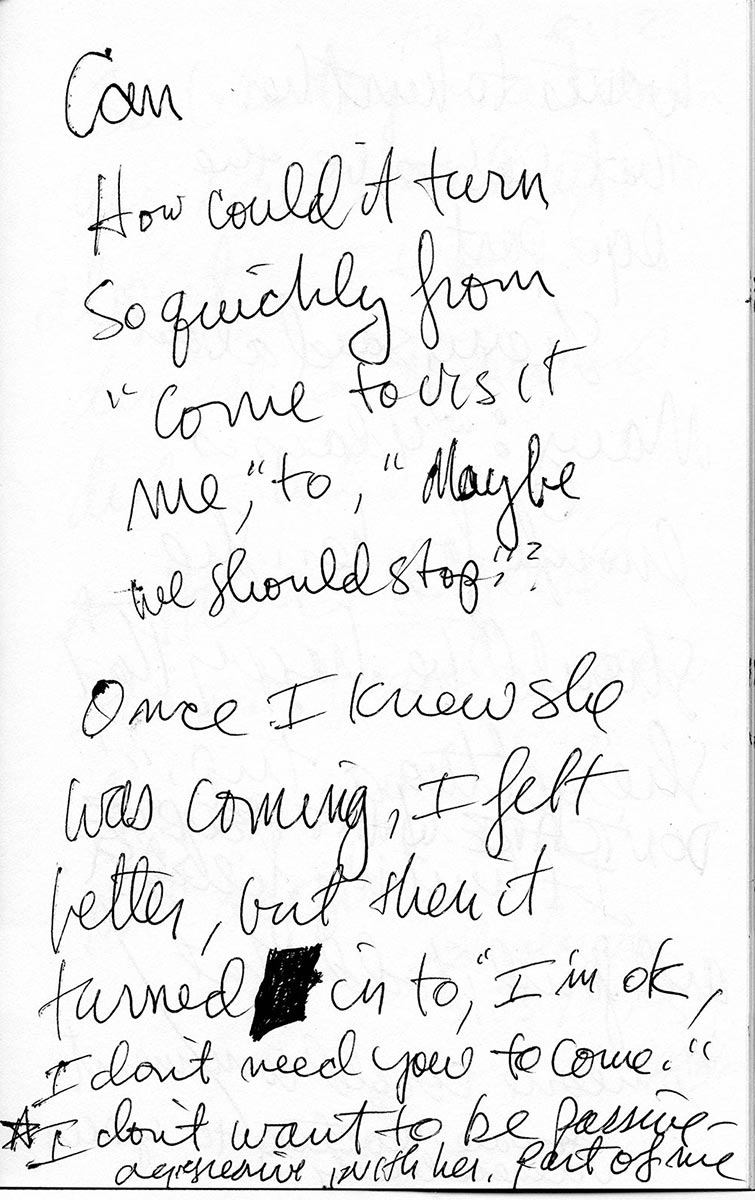 Can
How could it turn
so quickly from
"Come to visit
me," to, "Maybe
we should stop."?
Once I knew she
was coming, I felt
better, but then it
turned in to, "I'm ok,
I don't need you to come."
☆ I don't want to be passive-
aggressive with her. Part of me